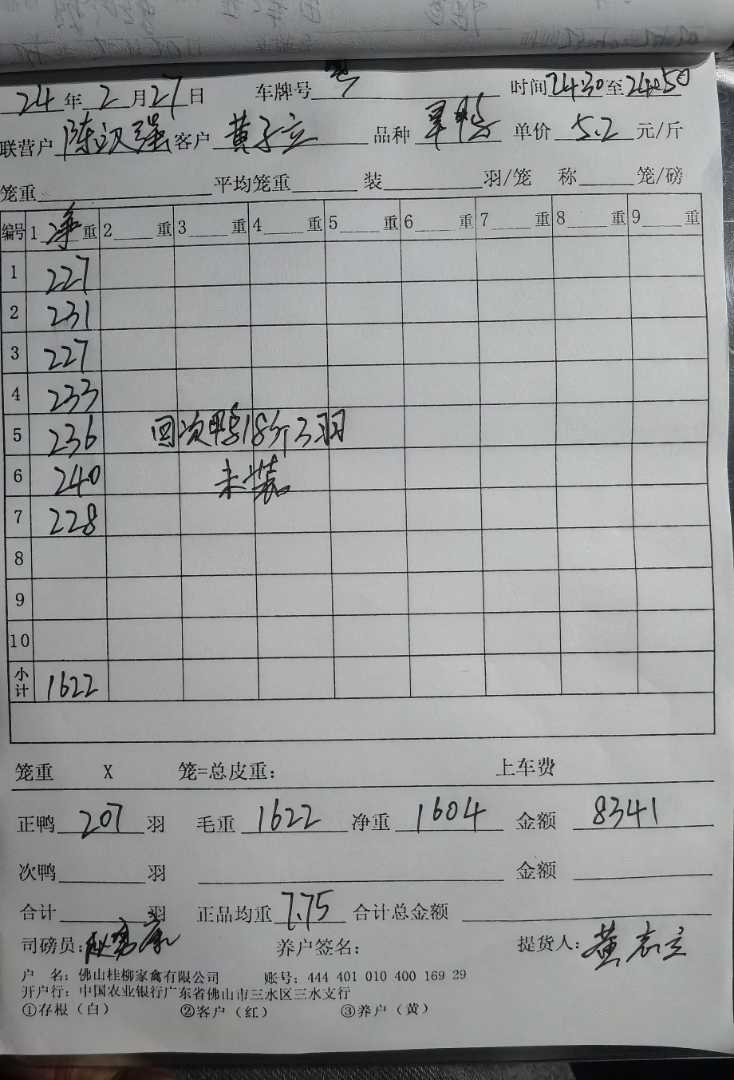 24年2月27日 车牌号 时间2430至24050
联营户陈汉强客户黄子立 品种旱鸭 单价5.2元/斤
笼重 平均笼重 装 羽/笼 称 笼/磅
编号 1净重 2 重 3 重 4 重 5 重 6 重 7 重 8 重 9 重
1 227
2 231
3 227
4 233
5 236 回次鸭18斤3羽
6 240 未装
7 228
8
9
10
小计 1622
笼重 X 笼=总皮重： 上车费
正鸭207羽 毛重1622 净重1604 金额8341
次鸭 羽 金额
合计 羽 正品均重7.75 合计总金额
司磅员： 养户签名： 提货人：黄志立
户 名：佛山桂柳家禽有限公司 账号：444 401 010 400 169 29
开户行：中国农业银行广东省佛山市三水区三水支行
①存根（白） ②客户（红） ③养户（黄）